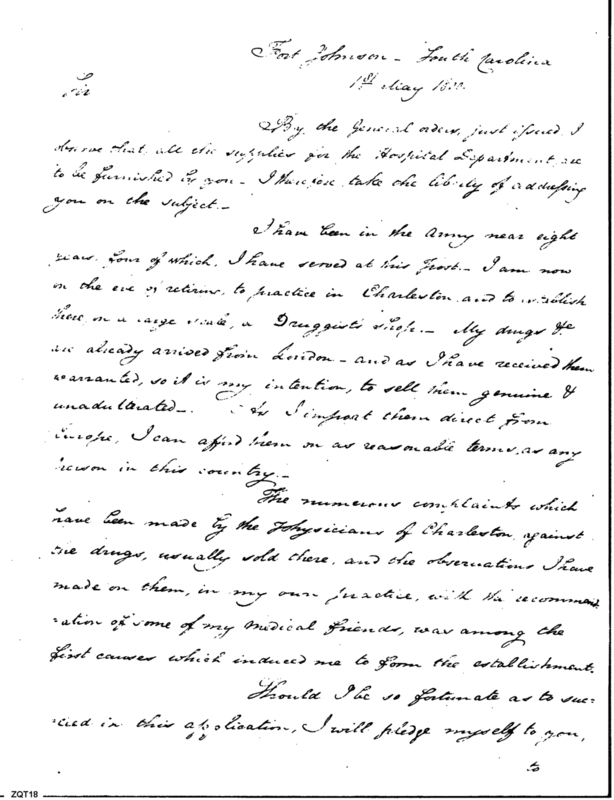 Fort Johnson - South Carolina
1st May 1800.
Sir
By the General orders, just issued, I
observe that, all the supplies for the Hospital Department, are
to be furnished by you - I therefore, take the liberty of addressing
you on the subject. -
I have been in the Army near eight
years, four of which, I have served at this Post. - I am now
on the eve of retiring, to practice in Charleston, and to establish
there, on a large scale, a Druggist's Shop. - My drugs &c
are already arrived from London - and as I have received them
warranted, so it is my intention, to sell them genuine &
unadulterated -. As I import them direct from
Europe, I can afford them on as reasonable terms, as any
person in this country. -
The numerous complaints which
have been made by the Physicians of Charleston, against
the drugs, usually sold there, and the observations I have
made on them, in my own practice, with the recommend
ation of some of my Medical friends, was among the
first causes which induced me to form the establishment.
Should I be so fortunate as to suc-
ceed in this application, I will pledge myself to you,
to
ZQT18